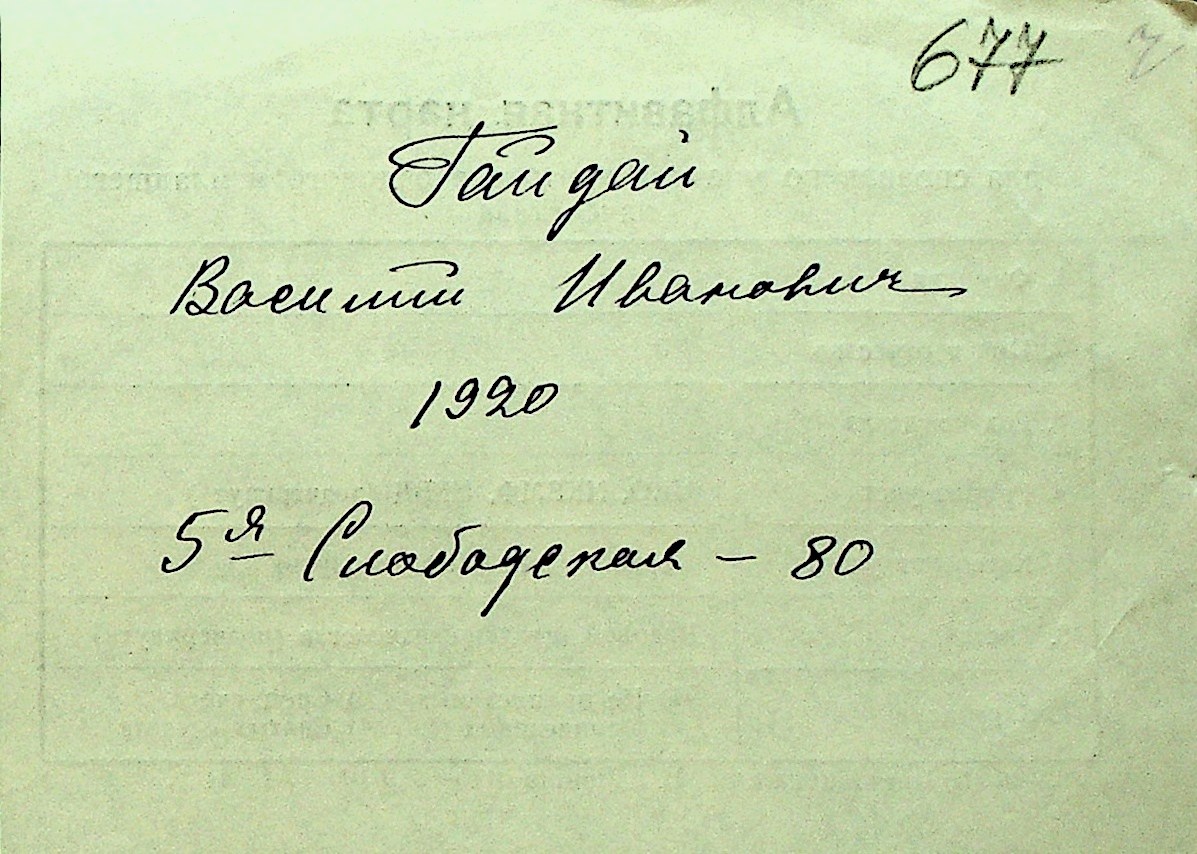 677
Гайдай
Василий Иванович
1920
5я Слободская – 80